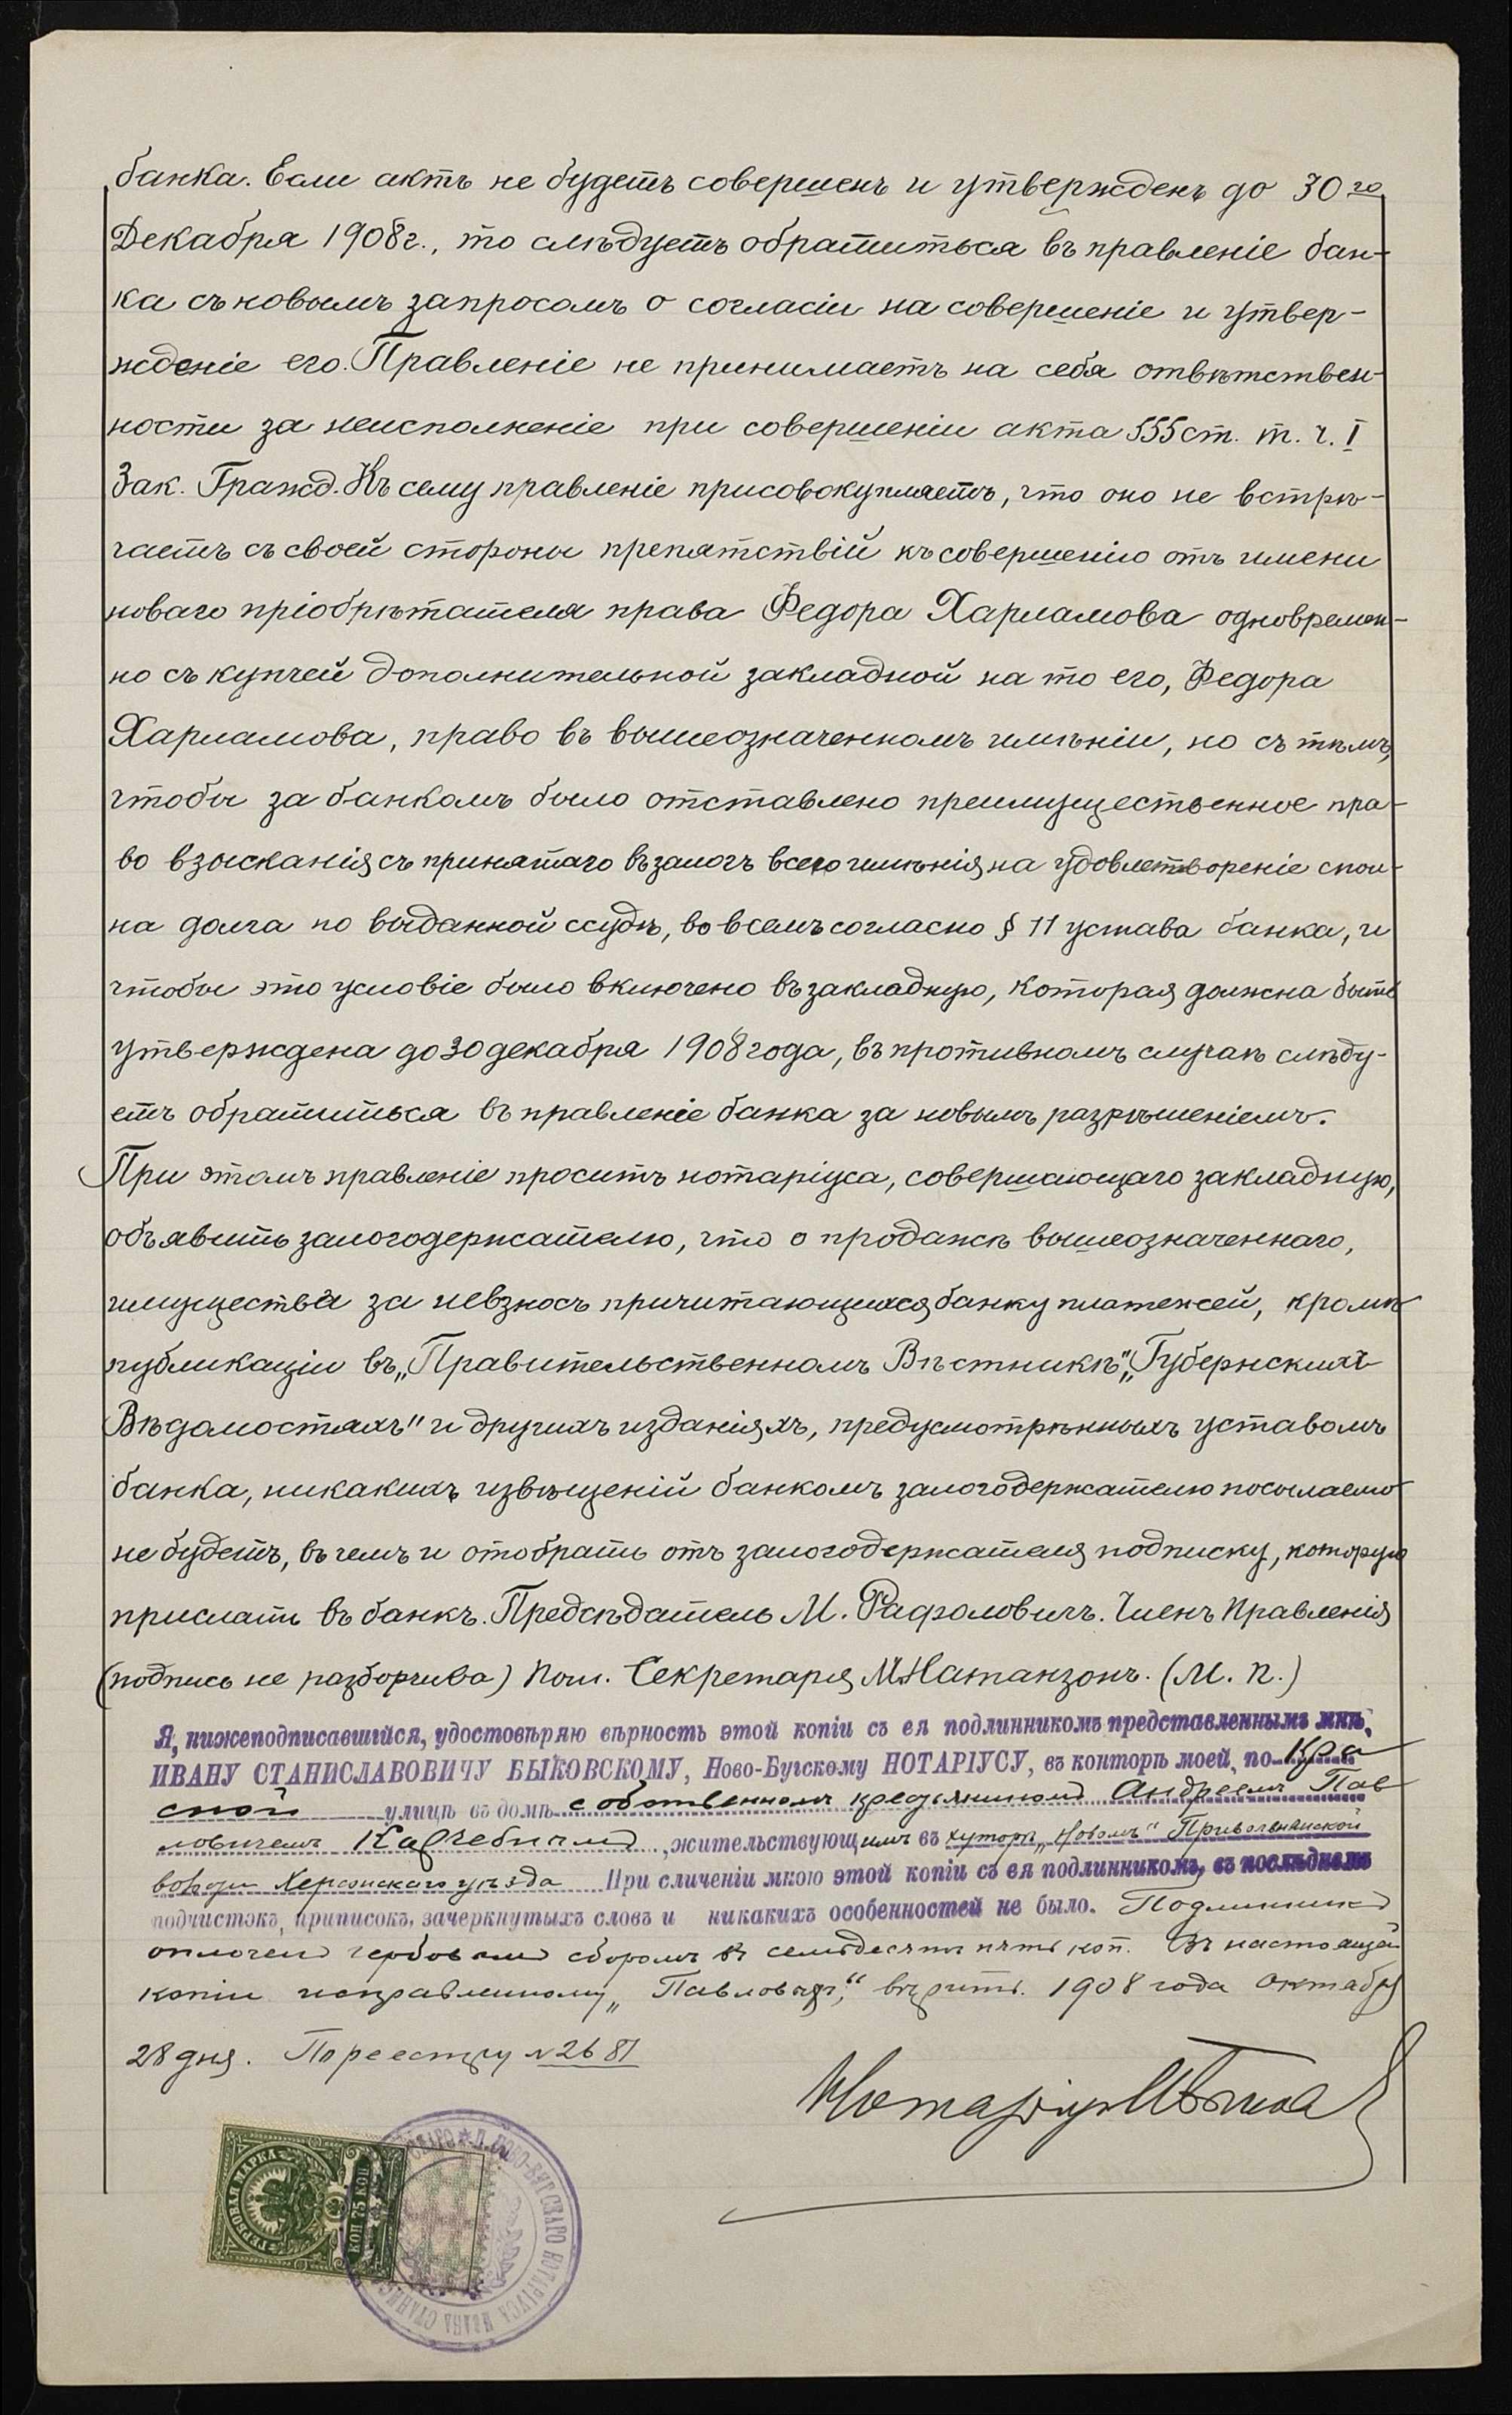 банка. Если актъ не будетъ совершенъ и утвержденъ до 30го
Декабря 1908 г., то слѣдуетъ обратиться въ правленіе бан-
ка съ новымъ запросомъ о согласіи на совершеніе и утвер-
жденіе его. Правленіе не принимаетъ на себя отвѣтствен-
ности за неисполненіе при совершеніи акта 555 ст. т. ч. I
Зак. Гражд. Къ сему правленіе присовокупляетъ, что оно не встрѣ-
чаетъ съ своей стороны препятствій къ совершенію отъ имени
новаго пріобрѣтателя права Федора Харламова одновремен-
но съ купчей дополнительной закладной на то его, Федора
Харламова, право въ вышеозначенномъ имѣніи, но съ тѣмъ,
чтобы за банкомъ было отставлено преимущественное пра-
во взысканія съ принятаго въ залогъ всего имѣнія на удовлетвореніе спол-
на долга по выданной ссудѣ, во всемъ согласно § 11 устава банка, и
чтобы это условіе было включено въ закладную, которая должна быть
утверждена до 30 декабря 1908 года, въ противномъ случаѣ слѣду-
етъ обратиться въ правленіе банка за новымъ разрѣшеніемъ.
При этомъ правленіе проситъ нотаріуса, совершающаго закладную,
объявить залогодержателю, что о продажѣ вышеозначеннаго,
имущества за невзносъ причитающихся банку платежей, кромѣ
публикаціи въ „Правительственномъ Вѣстникѣ", „Губернскихъ
Вѣдомостяхъ" и другихъ изданіяхъ, предусмотрѣнныхъ уставомъ
банка, никакихъ извѣщеній банкомъ залогодержателю посылаемо
не будетъ, въ чемъ и отобрать отъ залогодержателя подписку, которую
прислать въ банкъ. Предсѣдатель М. Рафоловичъ. Членъ Правленія
(подпись не разборчива) Пом. Секретаря М Натанзонъ. (М. п.)
Я, нижеподписавшійся, удостовѣряю вѣрность этой копіи съ ея подлинникомъ представленнымъ мнѣ,
ИВАНУ СТАНИСЛАВОВИЧУ БЫКОВСКОМУ, Ново-Бугскому НОТАРІУСУ, въ конторѣ моей, по Кра
сной улицѣ въ домѣ собственномъ крестьяниномъ Андреемъ Пав
ловичемъ , жительствующимъ въ хуторѣ „Новомъ" Привольнянской
волости Херсонскаго уѣзда При сличеніи мною этой копіи съ ея подлинникомъ, въ послѣднемъ
подчистокъ, приписокъ, зачеркнутыхъ словъ и никакихъ особенностей не было. Подлинникъ
оплоченъ гербовымъ сборомъ въ семьдесятъ пять коп. Въ настоящей
копіи исправленному „ вѣрить. 1908 года Октября
28 дня. По реестру № 2681
Нотаріусъ
ГЕРБОВАЯ МАРКА
КОП 75 КОП
НОВО-БУГСКАГО НОТАРІУСА ИВАНА СТАНИС